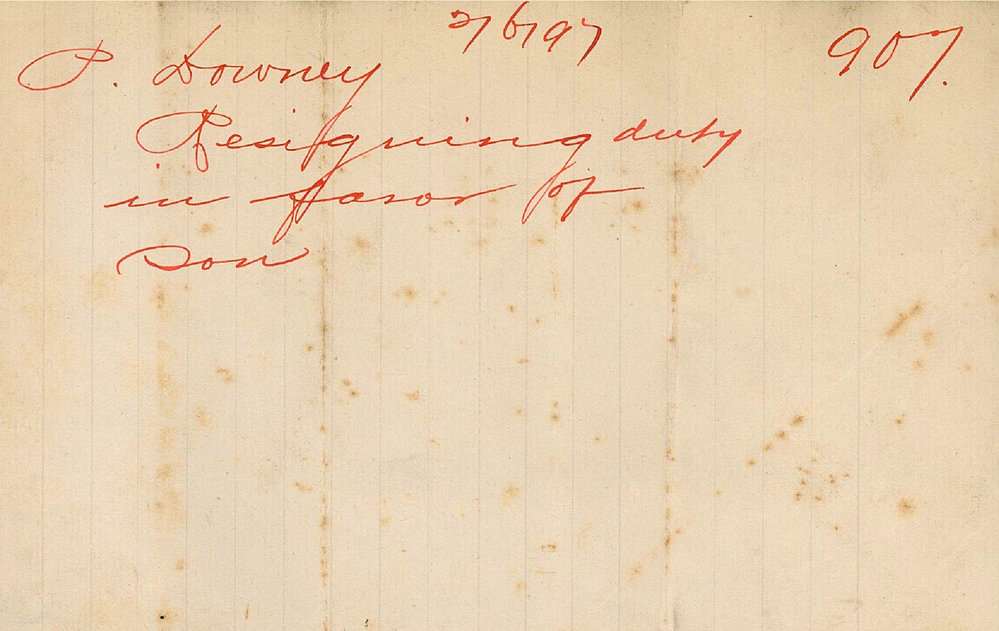 2/6/97
907.
P. Downey
Resigning duty
in favor of
son